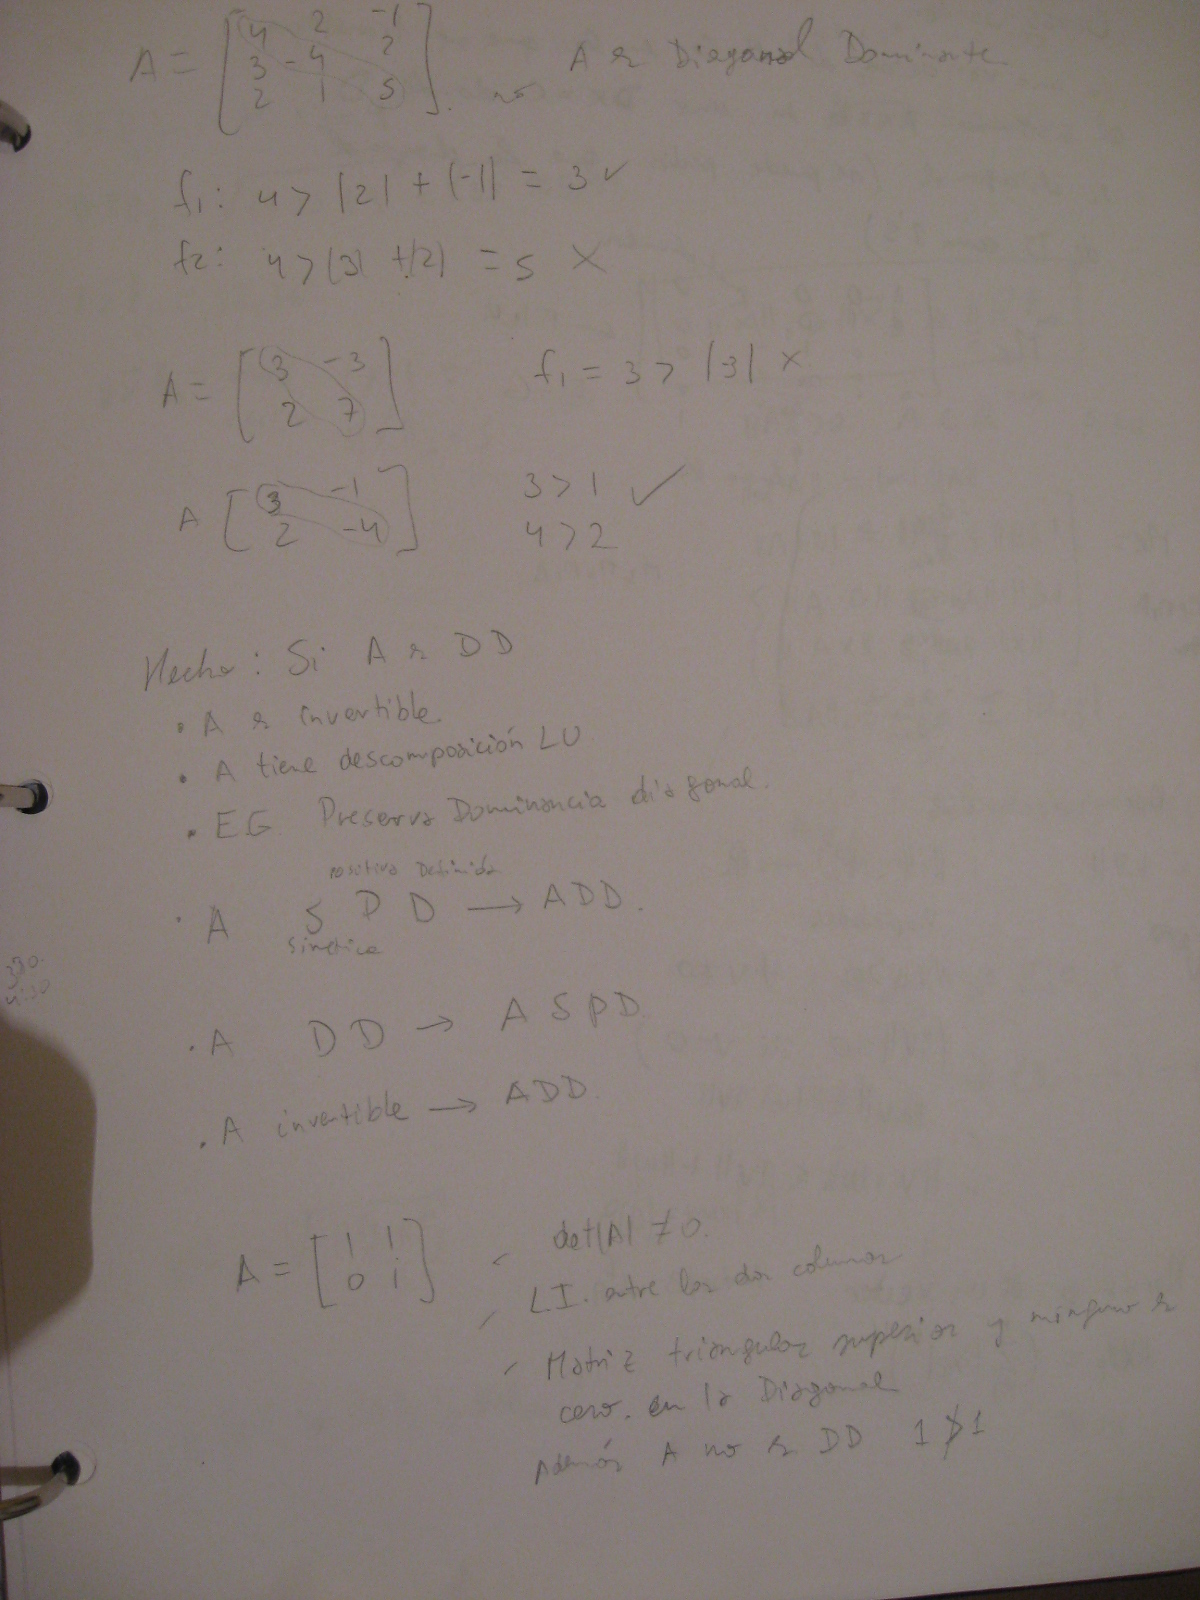 A = [ 4 2 -1
3 -4 2
2 1 5 ]. no A es Diagonal Dominante
f1: 4 > |2| + |-1| = 3 ✓
f2: 4 > |3| + |2| = 5 ×
A = [ 3 -3
2 7 ] f1 = 3 > |3| ×
A [ 3 -1
2 -4 ] 3 > 1 ✓
4 > 2
Hecho: Si A es DD
• A es invertible.
• A tiene descomposición LU
• EG Preserva Dominancia diagonal.
Positiva Definida
• A S P D → A DD.
Simetrica
• A DD → A SPD
• A invertible → A DD.
A = [ 1 1
0 1 ] ✓ det|A| ≠ 0.
✓ L I. entre las dos columnas
✓ Matriz triangular superior y ninguno es
cero. en la Diagonal
Además A no es DD 1 ≯ 1